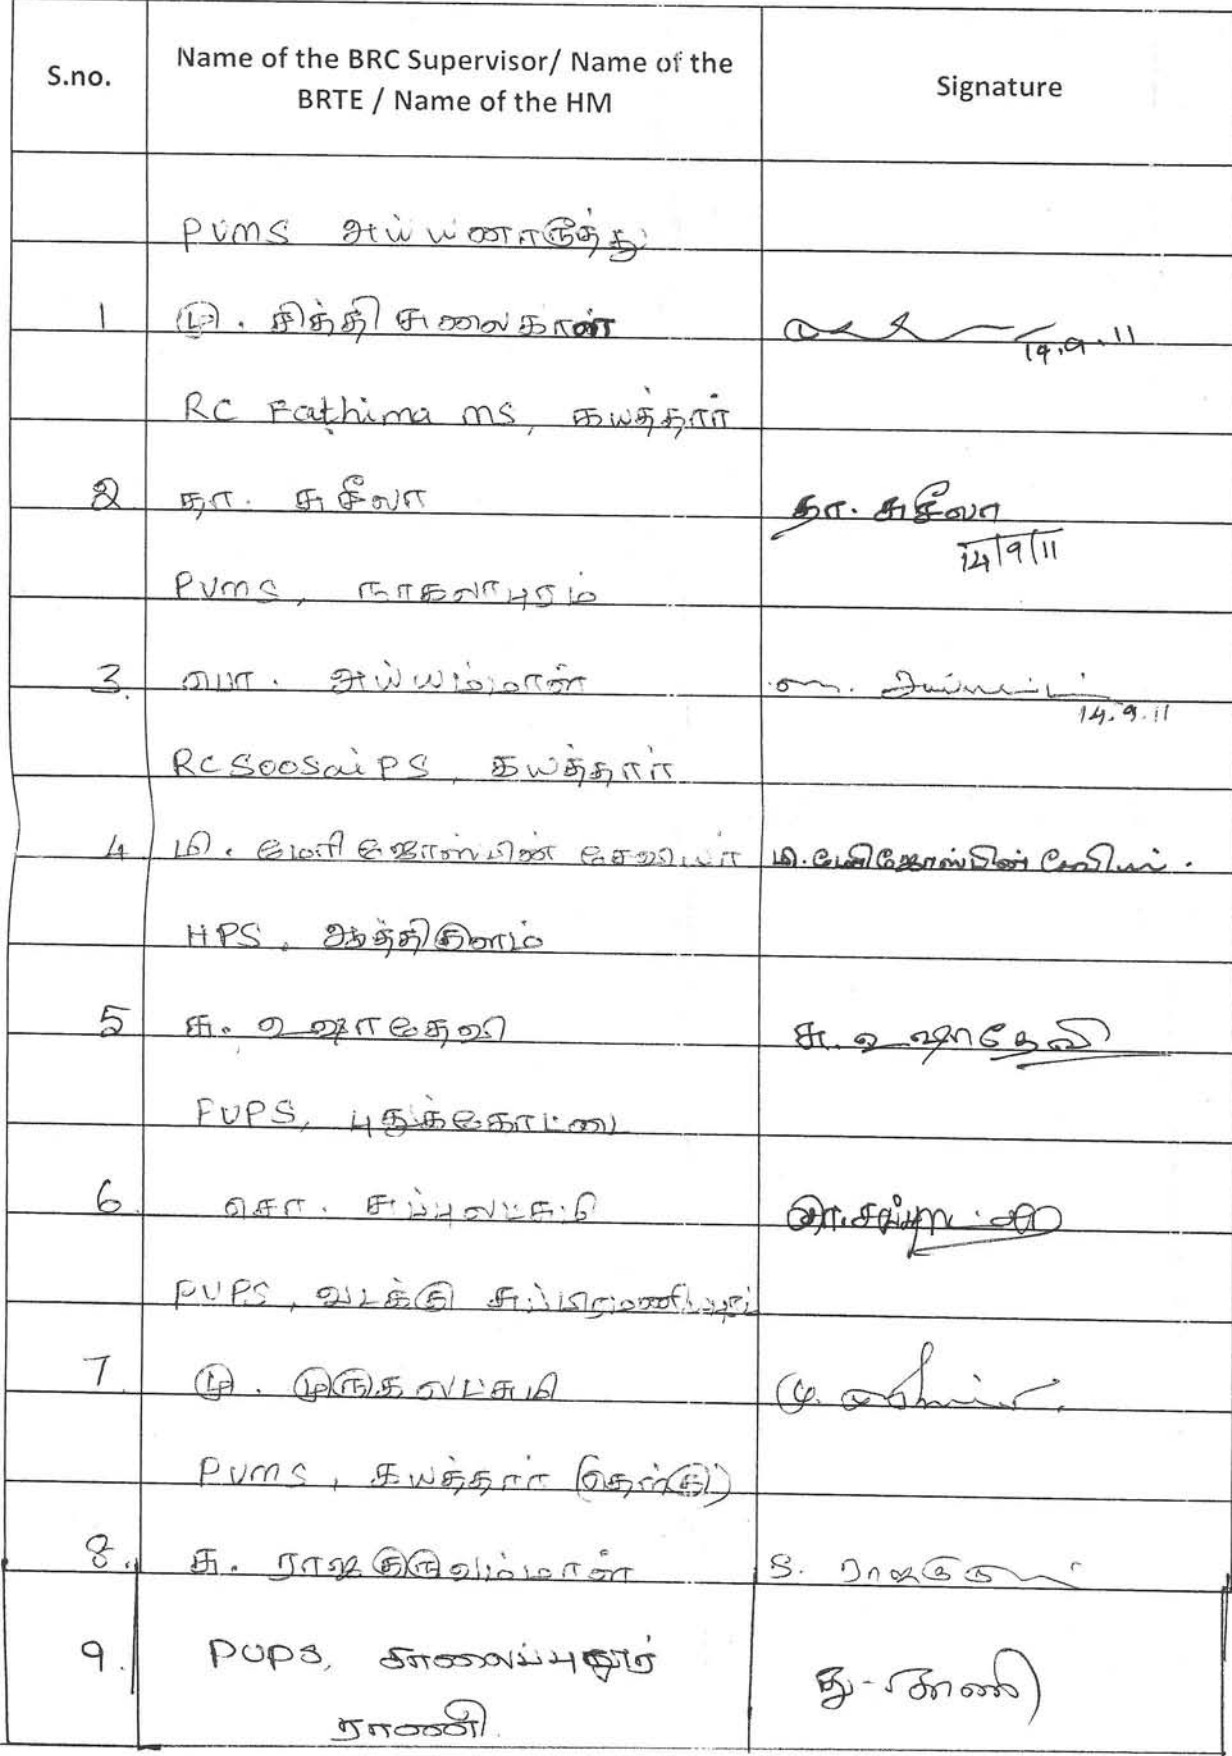 S.no. Name of the BRC Supervisor/ Name of the BRTE / Name of the HM Signature
PUMS அய்யனாரூத்து
1 மு. சித்தி சுலைகாள் 14.9.11
RC Fathima MS, கயத்தார்
2 தா. சுசீலா தா. சுசீலா
14/9/11
PUMS, நாகலாபுரம்
3. பொ. அய்யம்மாள்
14.9.11
RC Soosai PS, கயத்தார்
4 மி. மேரி ஜோஸ்பின் சேவியர் மி. மேரிஜோஸ்பின் சேவியர்.
HPS, ஆத்திகுளம்
5 சு. உஷாதேவி சு. உஷாதேவி
PUPS, புதுக்கோட்டை
6. சொ. சுப்புலட்சுமி
PUPS, வடக்கு சுப்பிரமணியபுரம்
7. மு. முருகலட்சுமி மு.
PUMS, கயத்தார் (தெற்கு)
8. சு. ராஜகுருவம்மாள் S. ராஜகுரு
9. PUPS, காலைப்புதூர்
ராணி.